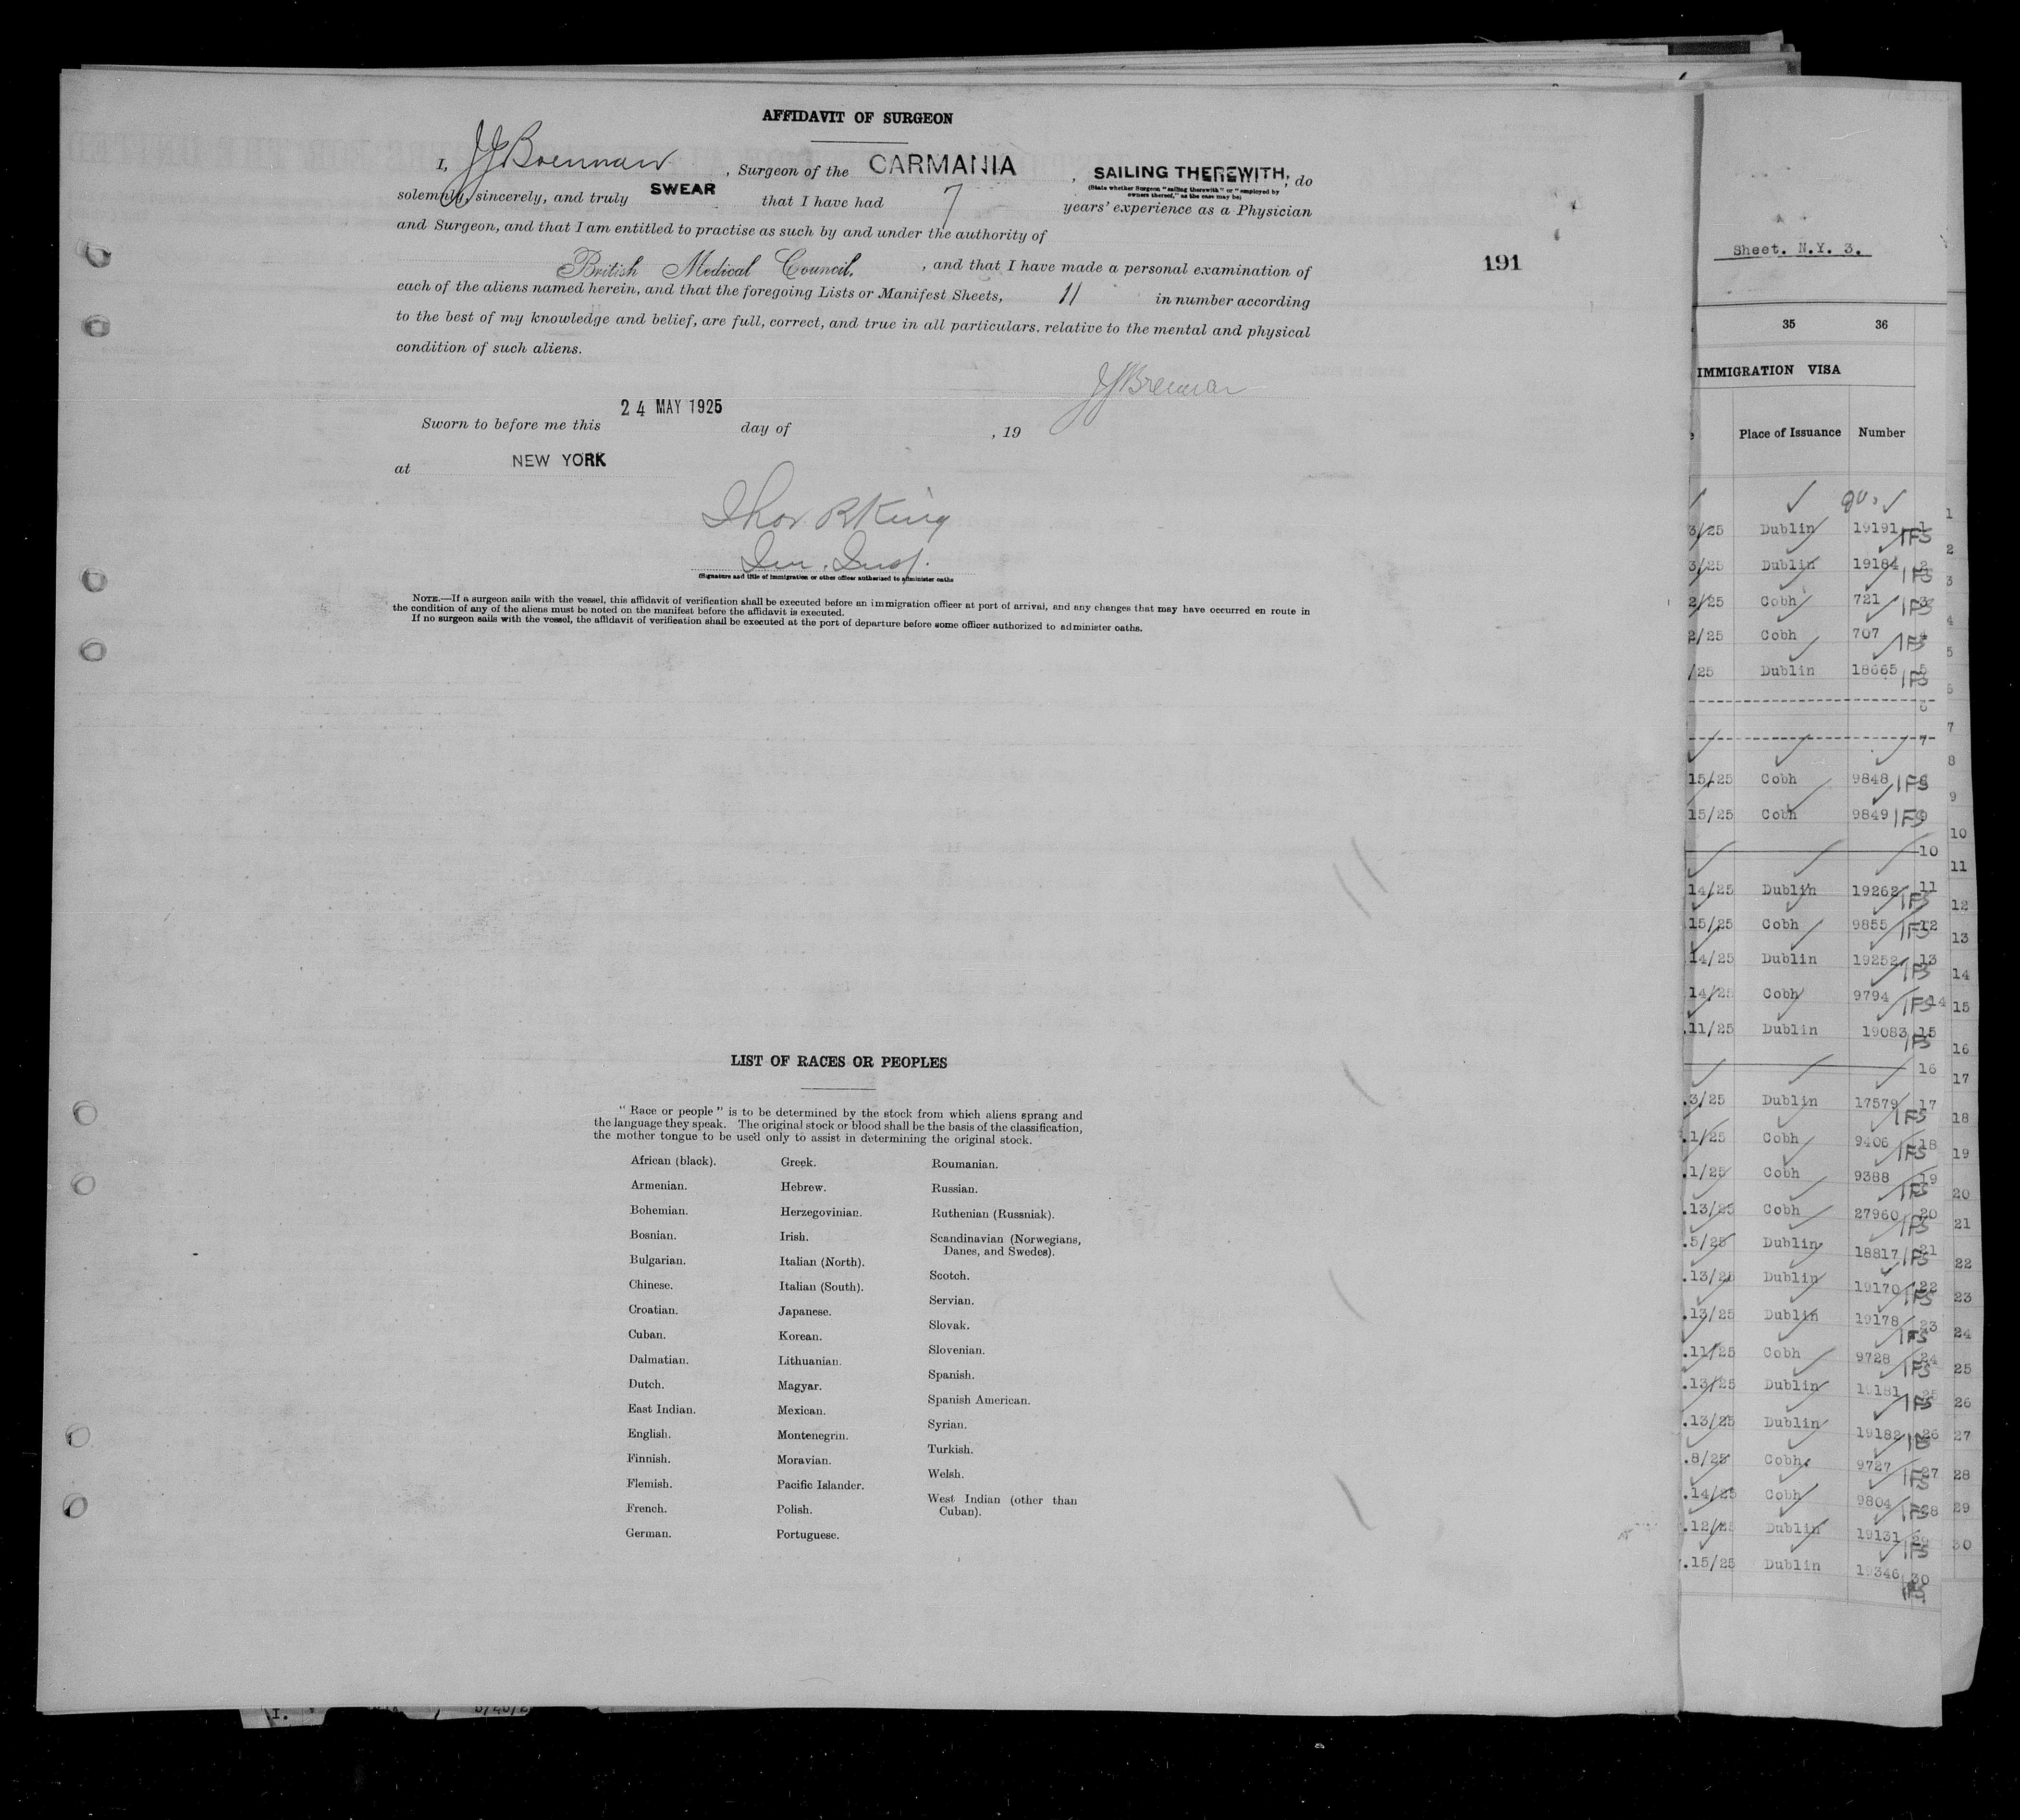 AFFIDAVIT OF SURGEON
I, JJ Brennan, Surgeon of the CARMANIA, SAILING THEREWITH, do
(State whether Surgeon "sailing therewith" or "employed by
owners thereof," as the case may be)
solemnly, sincerely, and truly SWEAR that I have had 7 years' experience as a Physician
and Surgeon, and that I am entitled to practise as such by and under the authority of
British Medical Council, and that I have made a personal examination of
each of the aliens named herein, and that the foregoing Lists or Manifest Sheets, 11 in number according
to the best of my knowledge and belief, are full, correct, and true in all particulars. relative to the mental and physical
condition of such aliens.
JJ Brennan
Sworn to before me this 24 MAY 1925 day of , 19
at NEW YORK
Thos R King
Im. Insp.
(Signature and title of immigration or other officer authorized to administer oaths
NOTE.—If a surgeon sails with the vessel, this affidavit of verification shall be executed before an immigration officer at port of arrival, and any changes that may have occurred en route in
the condition of any of the aliens must be noted on the manifest before the affidavit is executed.
If no surgeon sails with the vessel, the affidavit of verification shall be executed at the port of departure before some officer authorized to administer oaths.
191
LIST OF RACES OR PEOPLES
"Race or people" is to be determined by the stock from which aliens sprang and
the language they speak. The original stock or blood shall be the basis of the classification,
the mother tongue to be used only to assist in determining the original stock.
African (black).
Armenian.
Bohemian.
Bosnian.
Bulgarian.
Chinese.
Croatian.
Cuban.
Dalmatian.
Dutch.
East Indian.
English.
Finnish.
Flemish.
French.
German.
Greek.
Hebrew.
Herzegovinian.
Irish.
Italian (North).
Italian (South).
Japanese.
Korean.
Lithuanian.
Magyar.
Mexican.
Montenegrin.
Moravian.
Pacific Islander.
Polish.
Portuguese.
Roumanian.
Russian.
Ruthenian (Russniak).
Scandinavian (Norwegians,
Danes, and Swedes).
Scotch.
Servian.
Slovak.
Slovenian.
Spanish.
Spanish American.
Syrian.
Turkish.
Welsh.
West Indian (other than
Cuban).
Sheet. N.Y. 3.
35 36
IMMIGRATION VISA
Place of Issuance Number
3/25 Dublin 19191 IFS 1
3/25 Dublin 19184 IFS 2
2/25 Cobh 721 IFS 3
2/25 Cobh 707 IFS 4
/25 Dublin 18665 IFS 5
6
7
15/25 Cobh 9848 IFS 8
15/25 Cobh 9849 IFS 9
10
14/25 Dublin 19262 IFS 11
15/25 Cobh 9855 IFS 12
14/25 Dublin 19252 IFS 13
14/25 Cobh 9794 IFS 14
.11/25 Dublin 19083 IFS 15
16
.3/25 Dublin 17579 IFS 17
.1/25 Cobh 9406 IFS 18
.1/25 Cobh 9388 IFS 19
.13/25 Cobh 27960 IFS 20
.5/25 Dublin 18817 IFS 21
.13/25 Dublin 19170 IFS 22
.13/25 Dublin 19178 IFS 23
.11/25 Cobh 9728 IFS 24
.13/25 Dublin 19181 IFS 25
.13/25 Dublin 19182 26
.8/25 Cobh. 9727 IFS 27
.14/25 Cobh 9804 IFS 28
.12/25 Dublin 19131 IFS 29
.15/25 Dublin 19346 30
1
2
3
4
5
6
7
8
9
10
11
12
13
14
15
16
17
18
19
20
21
22
23
24
25
26
27
28
29
30